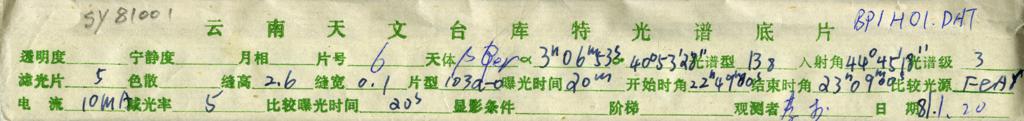 SY81001
云南天文台库特光谱底片 BP1H01.DAT
透明度 宁静度 月相 片号 6 天体 β Per α 3h06m53s 40°53'28" 光谱型 B8 入射角 44°45'18" 光谱级 3
滤光片 5 色散 缝高 2.6 缝宽 0.1 片型 103a-O 曝光时间 20m 开始时角 22h49m00s 结束时角 23h09m00s 比较光源 FeAr
电流 10mA 减光率 5 比较曝光时间 20s 显影条件 阶梯 观测者 日期 81.1.20